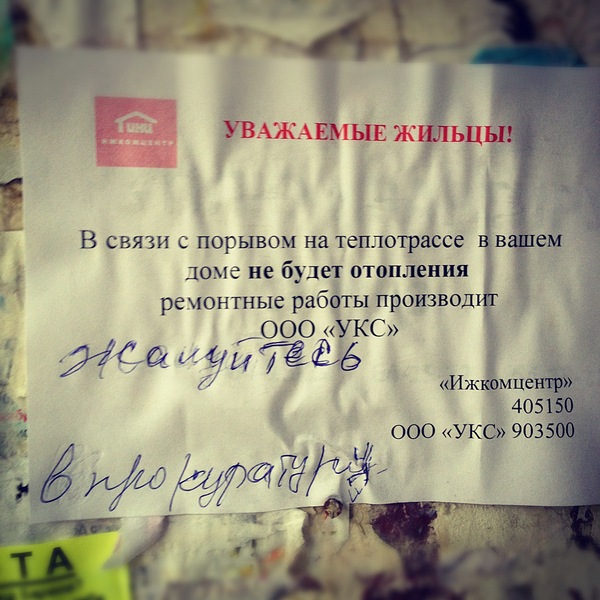 ИЖКОМЦЕНТР
УВАЖАЕМЫЕ ЖИЛЬЦЫ!
В связи с порывом на теплотрассе в вашем
доме не будет отопления
ремонтные работы производит
ООО «УКС»
Жалуйтесь
«Ижкомцентр»
405150
ООО «УКС» 903500
в прокуратуру
ТА